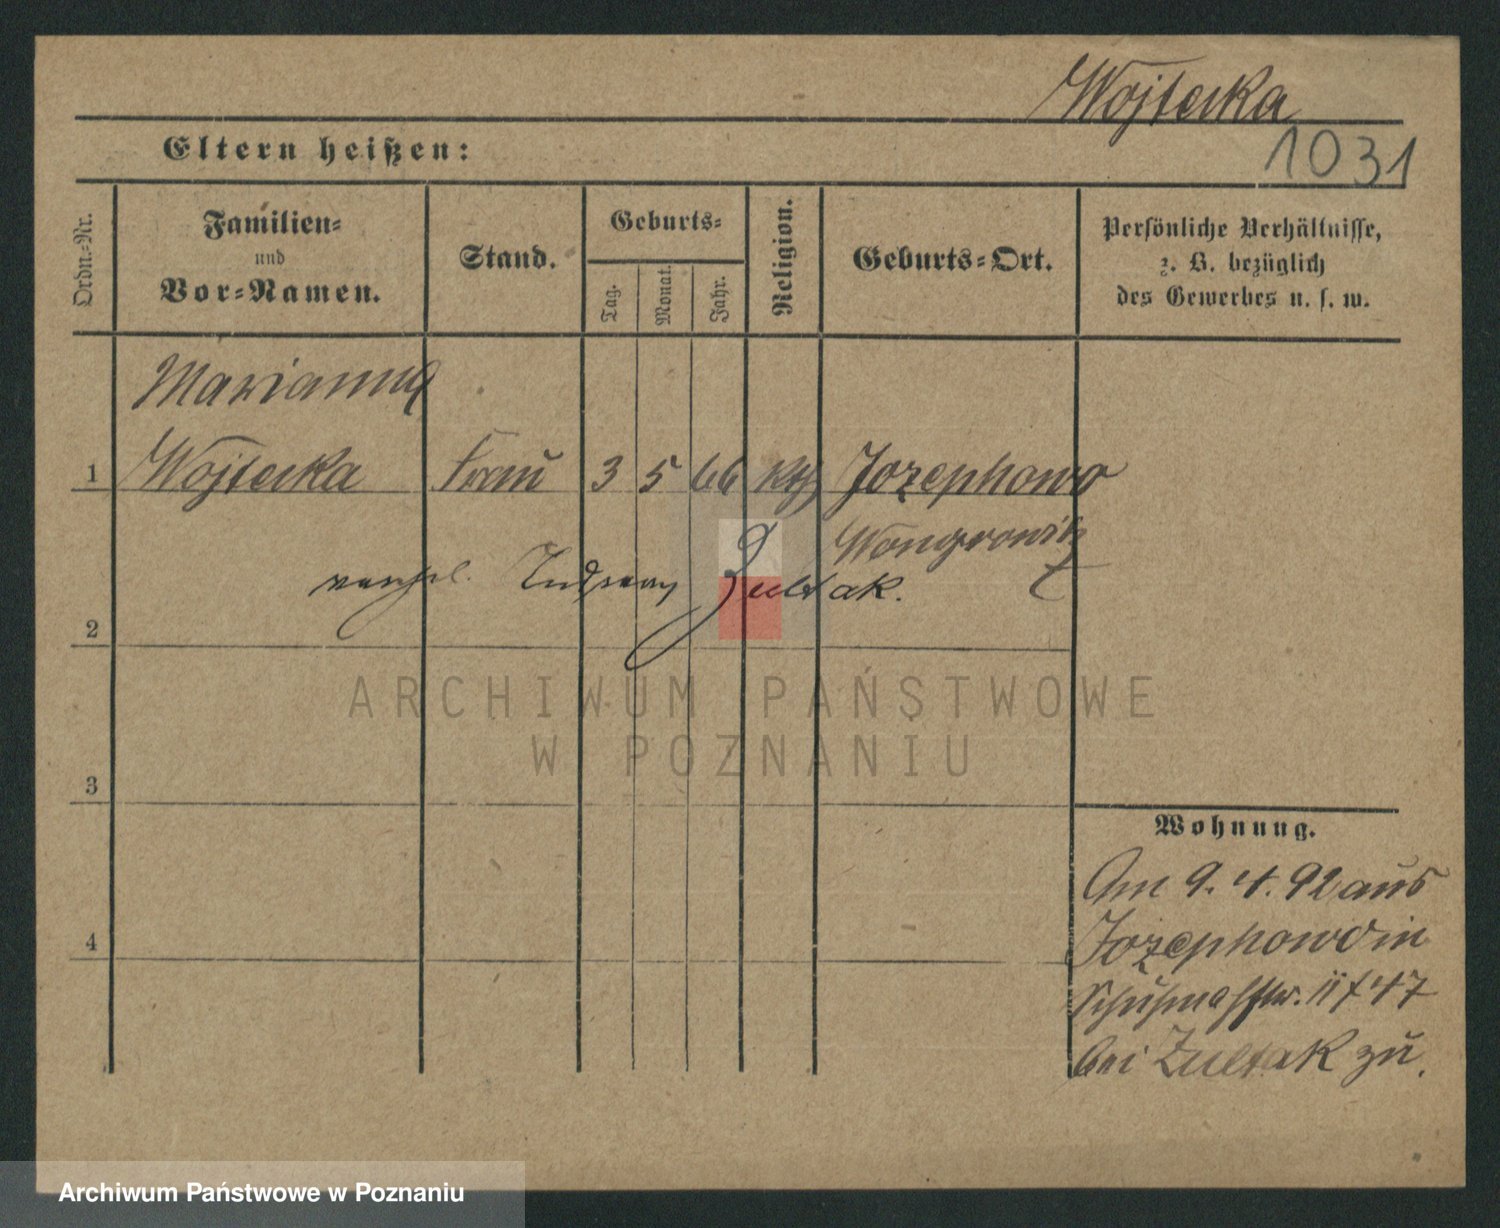 Wojtecka
1031
Eltern heißen:
Ordn.-Nr.
Familien-
und
Vor-Namen.
Stand.
Geburts-
Tag.
Monat.
Jahr.
Religion.
Geburts-Ort.
Persönliche Verhältnisse,
z. B. bezüglich
des Gewerbes u. s. w.
Marianna
1 Wojtecka Frau 3 5 66 Kth Jozephowo
Wongrowitz
Zultak.
2
ARCHIWUM PAŃSTWOWE
W POZNANIU
3
Wohnung.
Am 9. 4. 92 aus
4
Jozephowo in
bei Zultak zu.
Archiwum Państwowe w Poznaniu